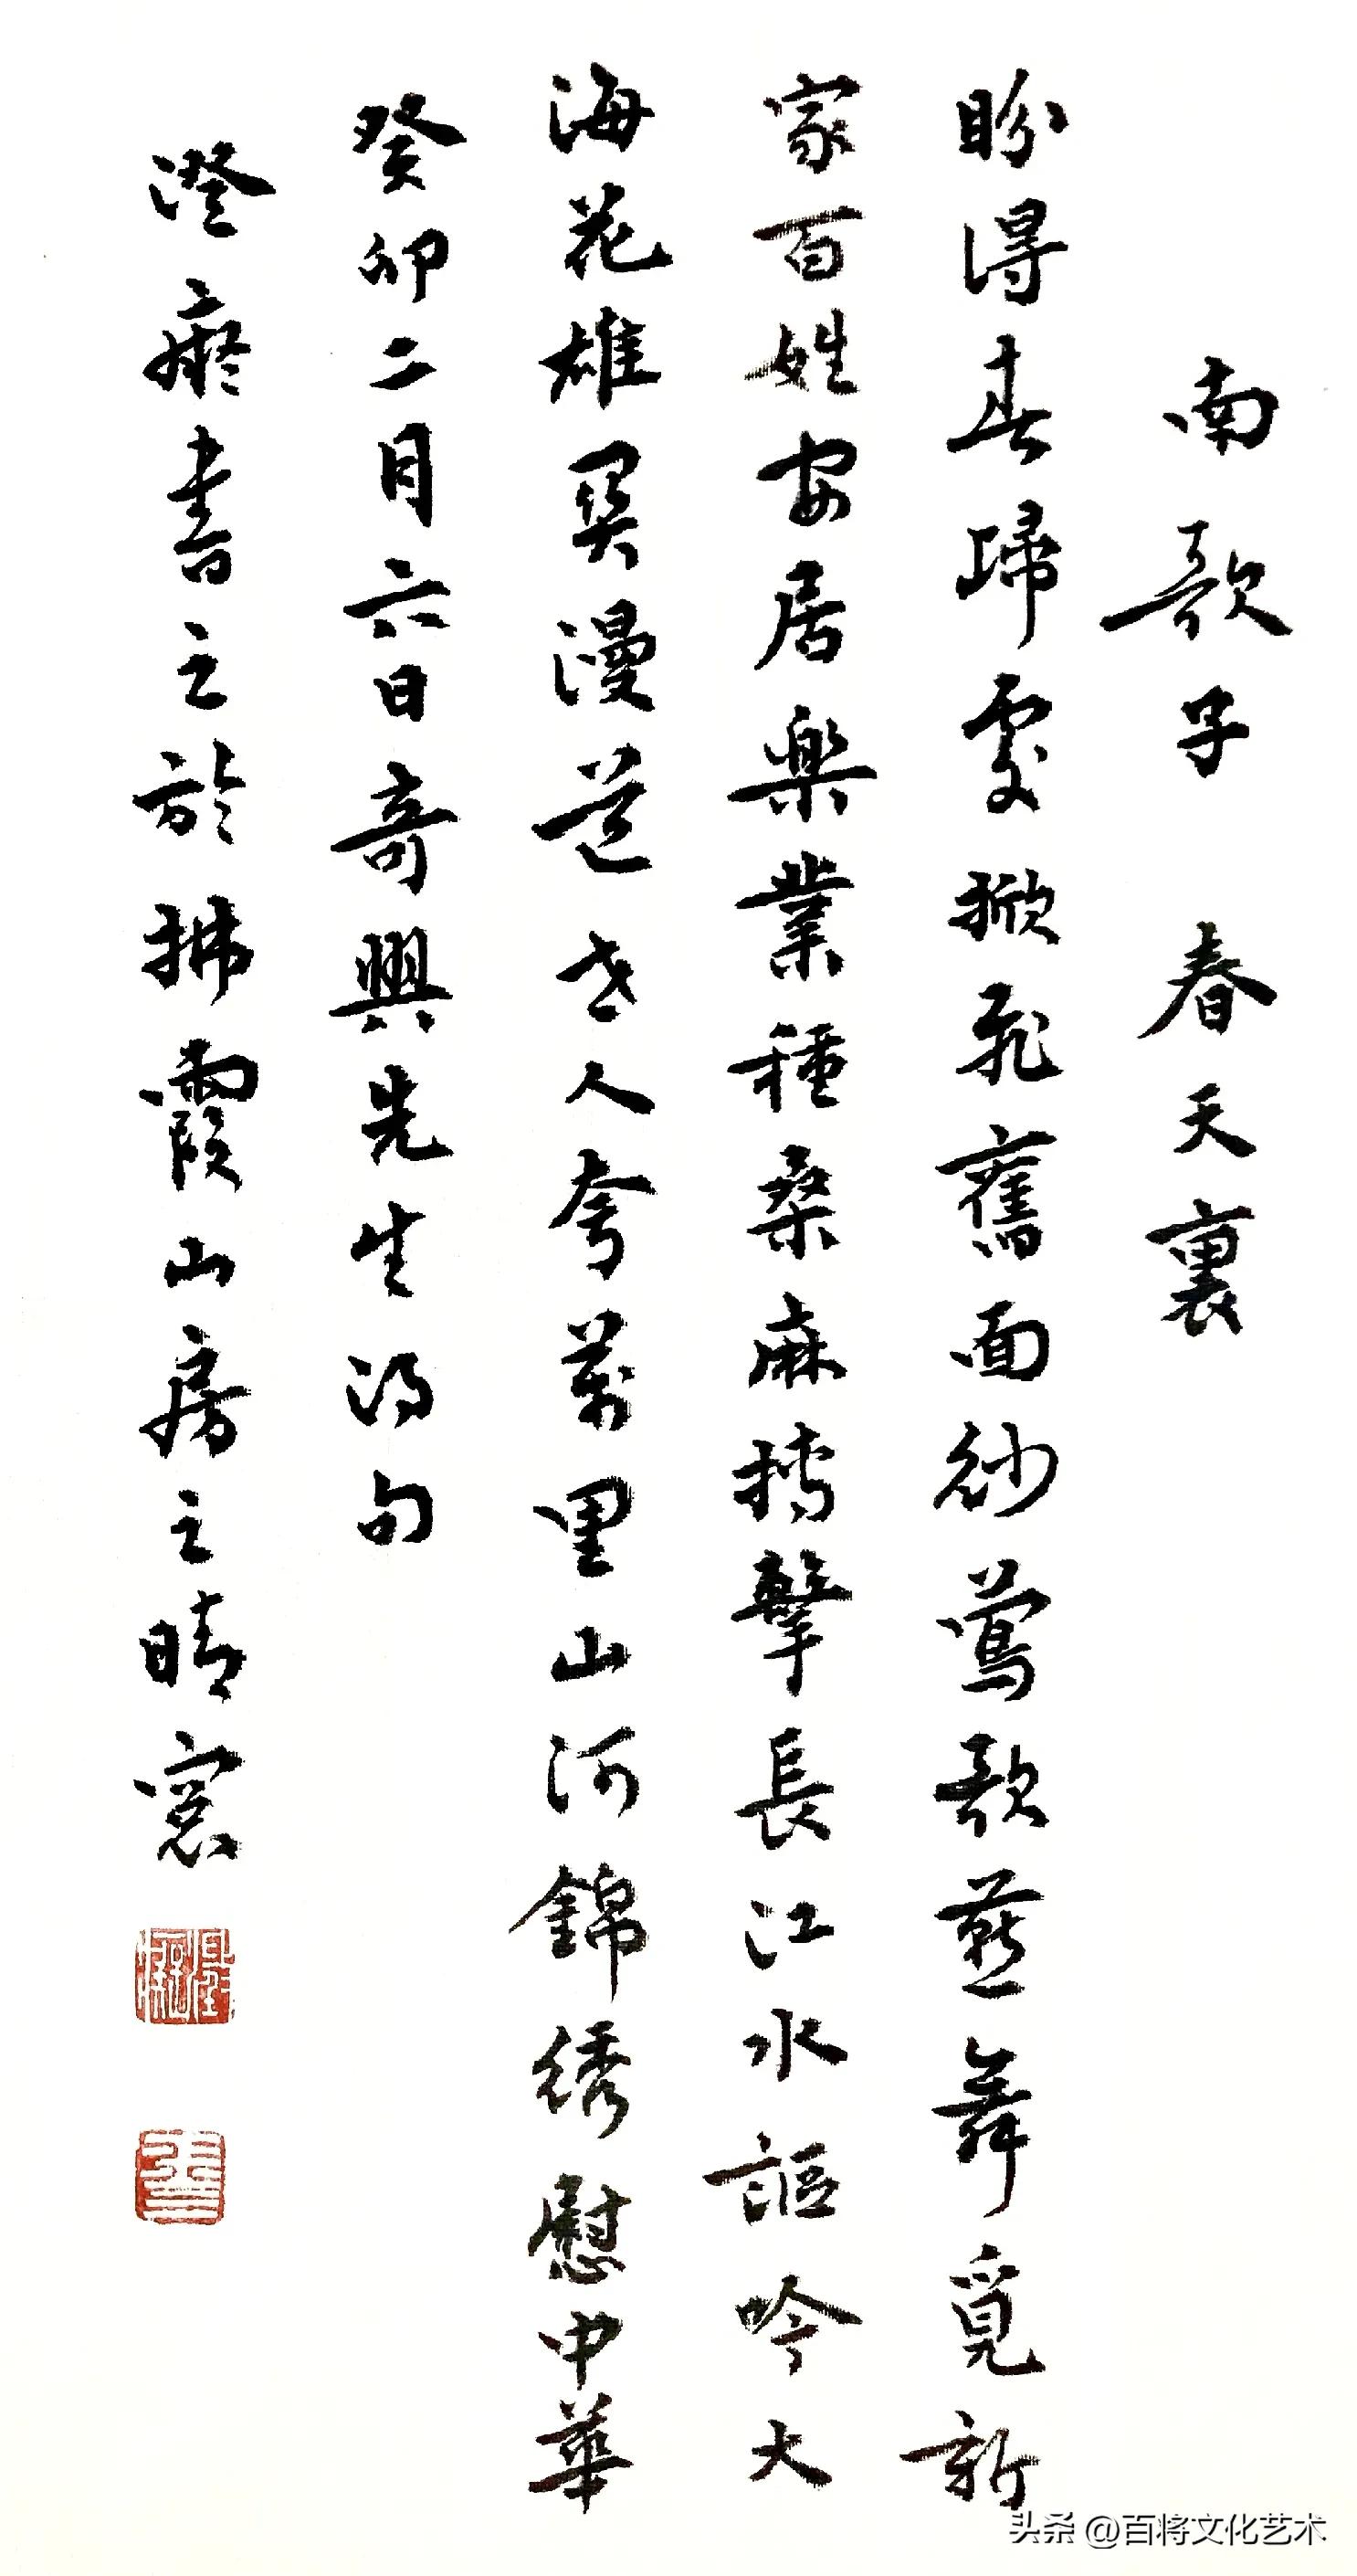 南歌子 春天裏
盼得春歸處掀飛舊面紗鶯歌燕舞覓新
家百姓安居楽業種桑麻搏擊長江水謳吟大
海花雄関漫道世人夸萬里山河錦綉慰中華
癸卯二月六日奇興先生得句
澄癡書之於拂霞山房之晴窓
头条 @百将文化艺术